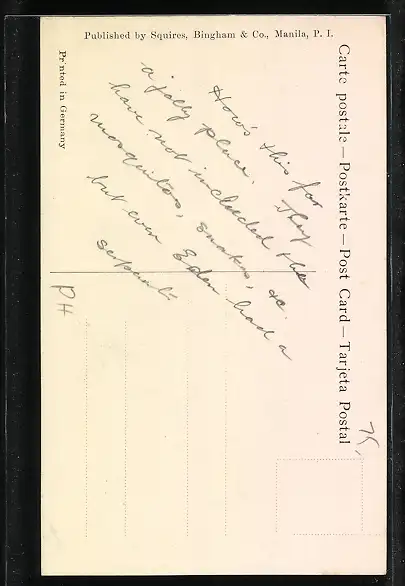 Published by Squires, Bingham & Co., Manila, P. I.
Carte postale — Postkarte — Post Card — Tarjeta Postal
Printed in Germany
How's this for
a jolly place. They
have not included the
mosquitos, snakes, &c.
but even Eden had a
serpent
PH
75,